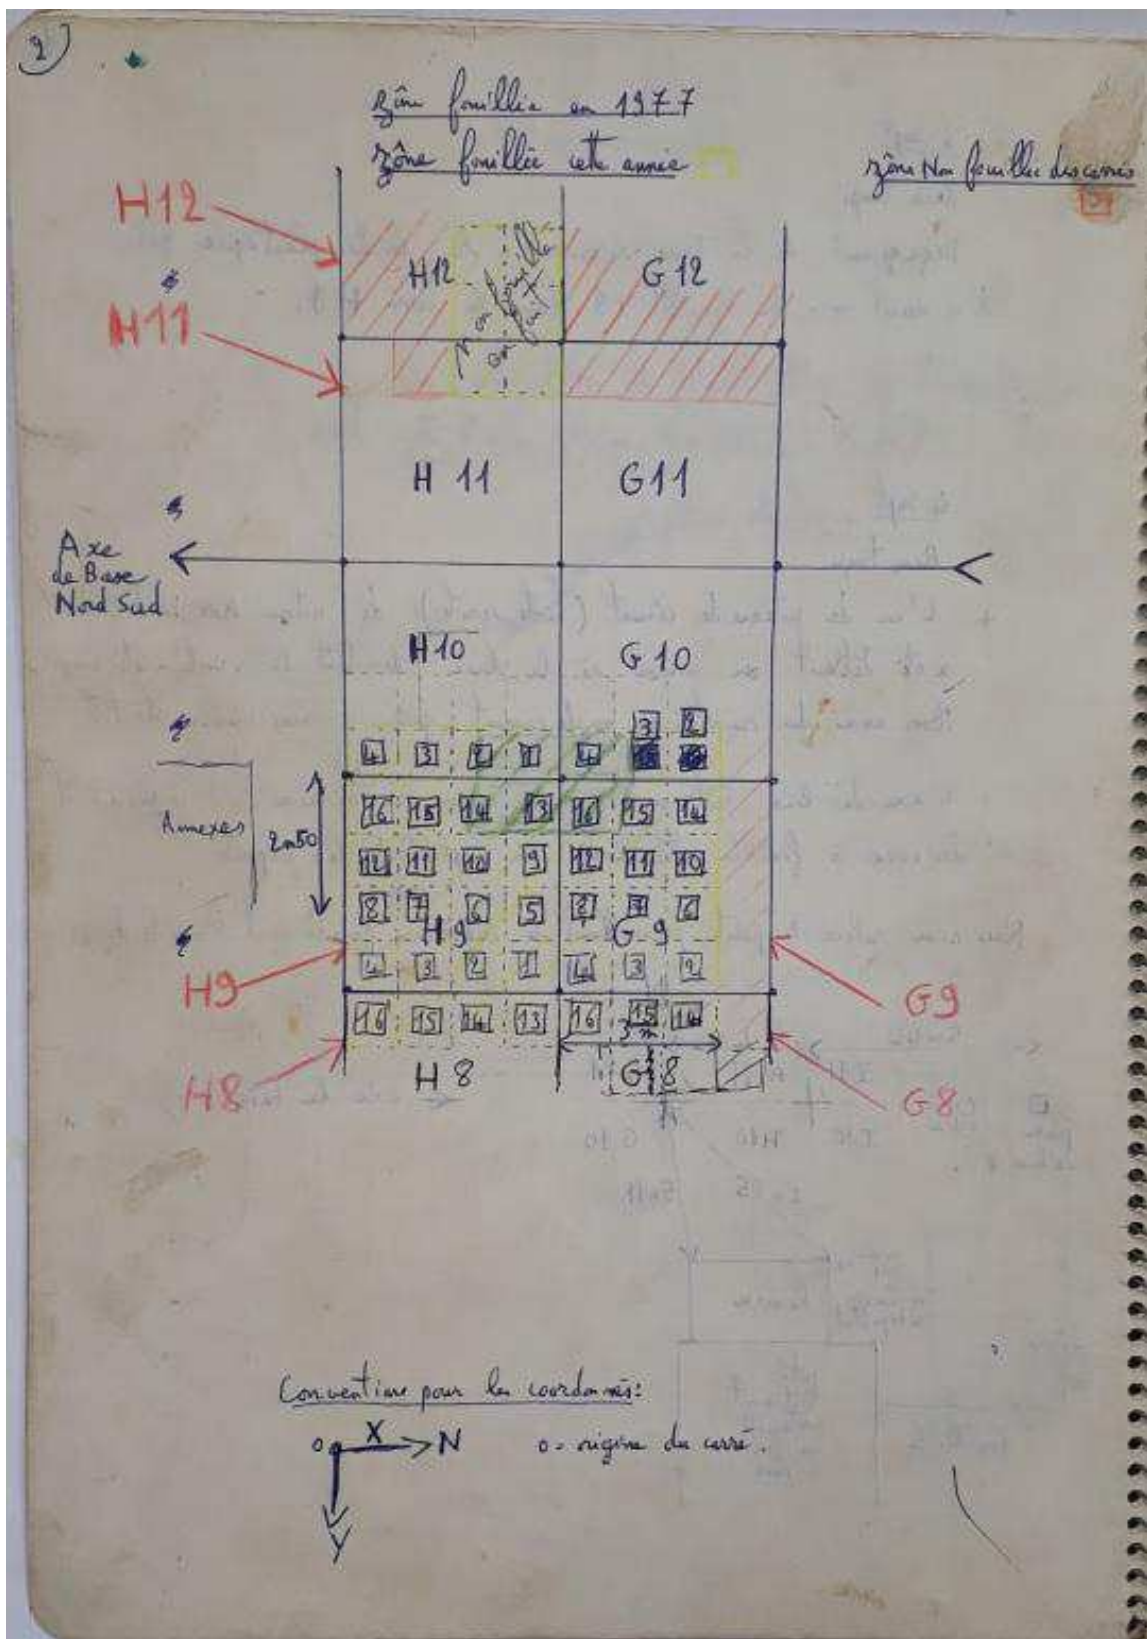 2
zône fouillée en 1977
zône fouillée cette année
zône Non fouillée des carrés
H12
H12
G12
Non fouillé
en fait
H11
H 11
G11
Axe
de Base
Nord Sud
H10
G10
3 2
4 3 2 1 4
Annexes
2m50
16 15 14 13 16 15 14
12 11 10 9 12 11 10
8 7 6 5 8 7 6
H9 G9
4 3 2 1 4 3 2
H9
G9
16 15 14 13 16 15 14
3m
H8
H8
G8
G8
Conventions pour les coordonnés:
0 X N
0 = origine du carré.
Y